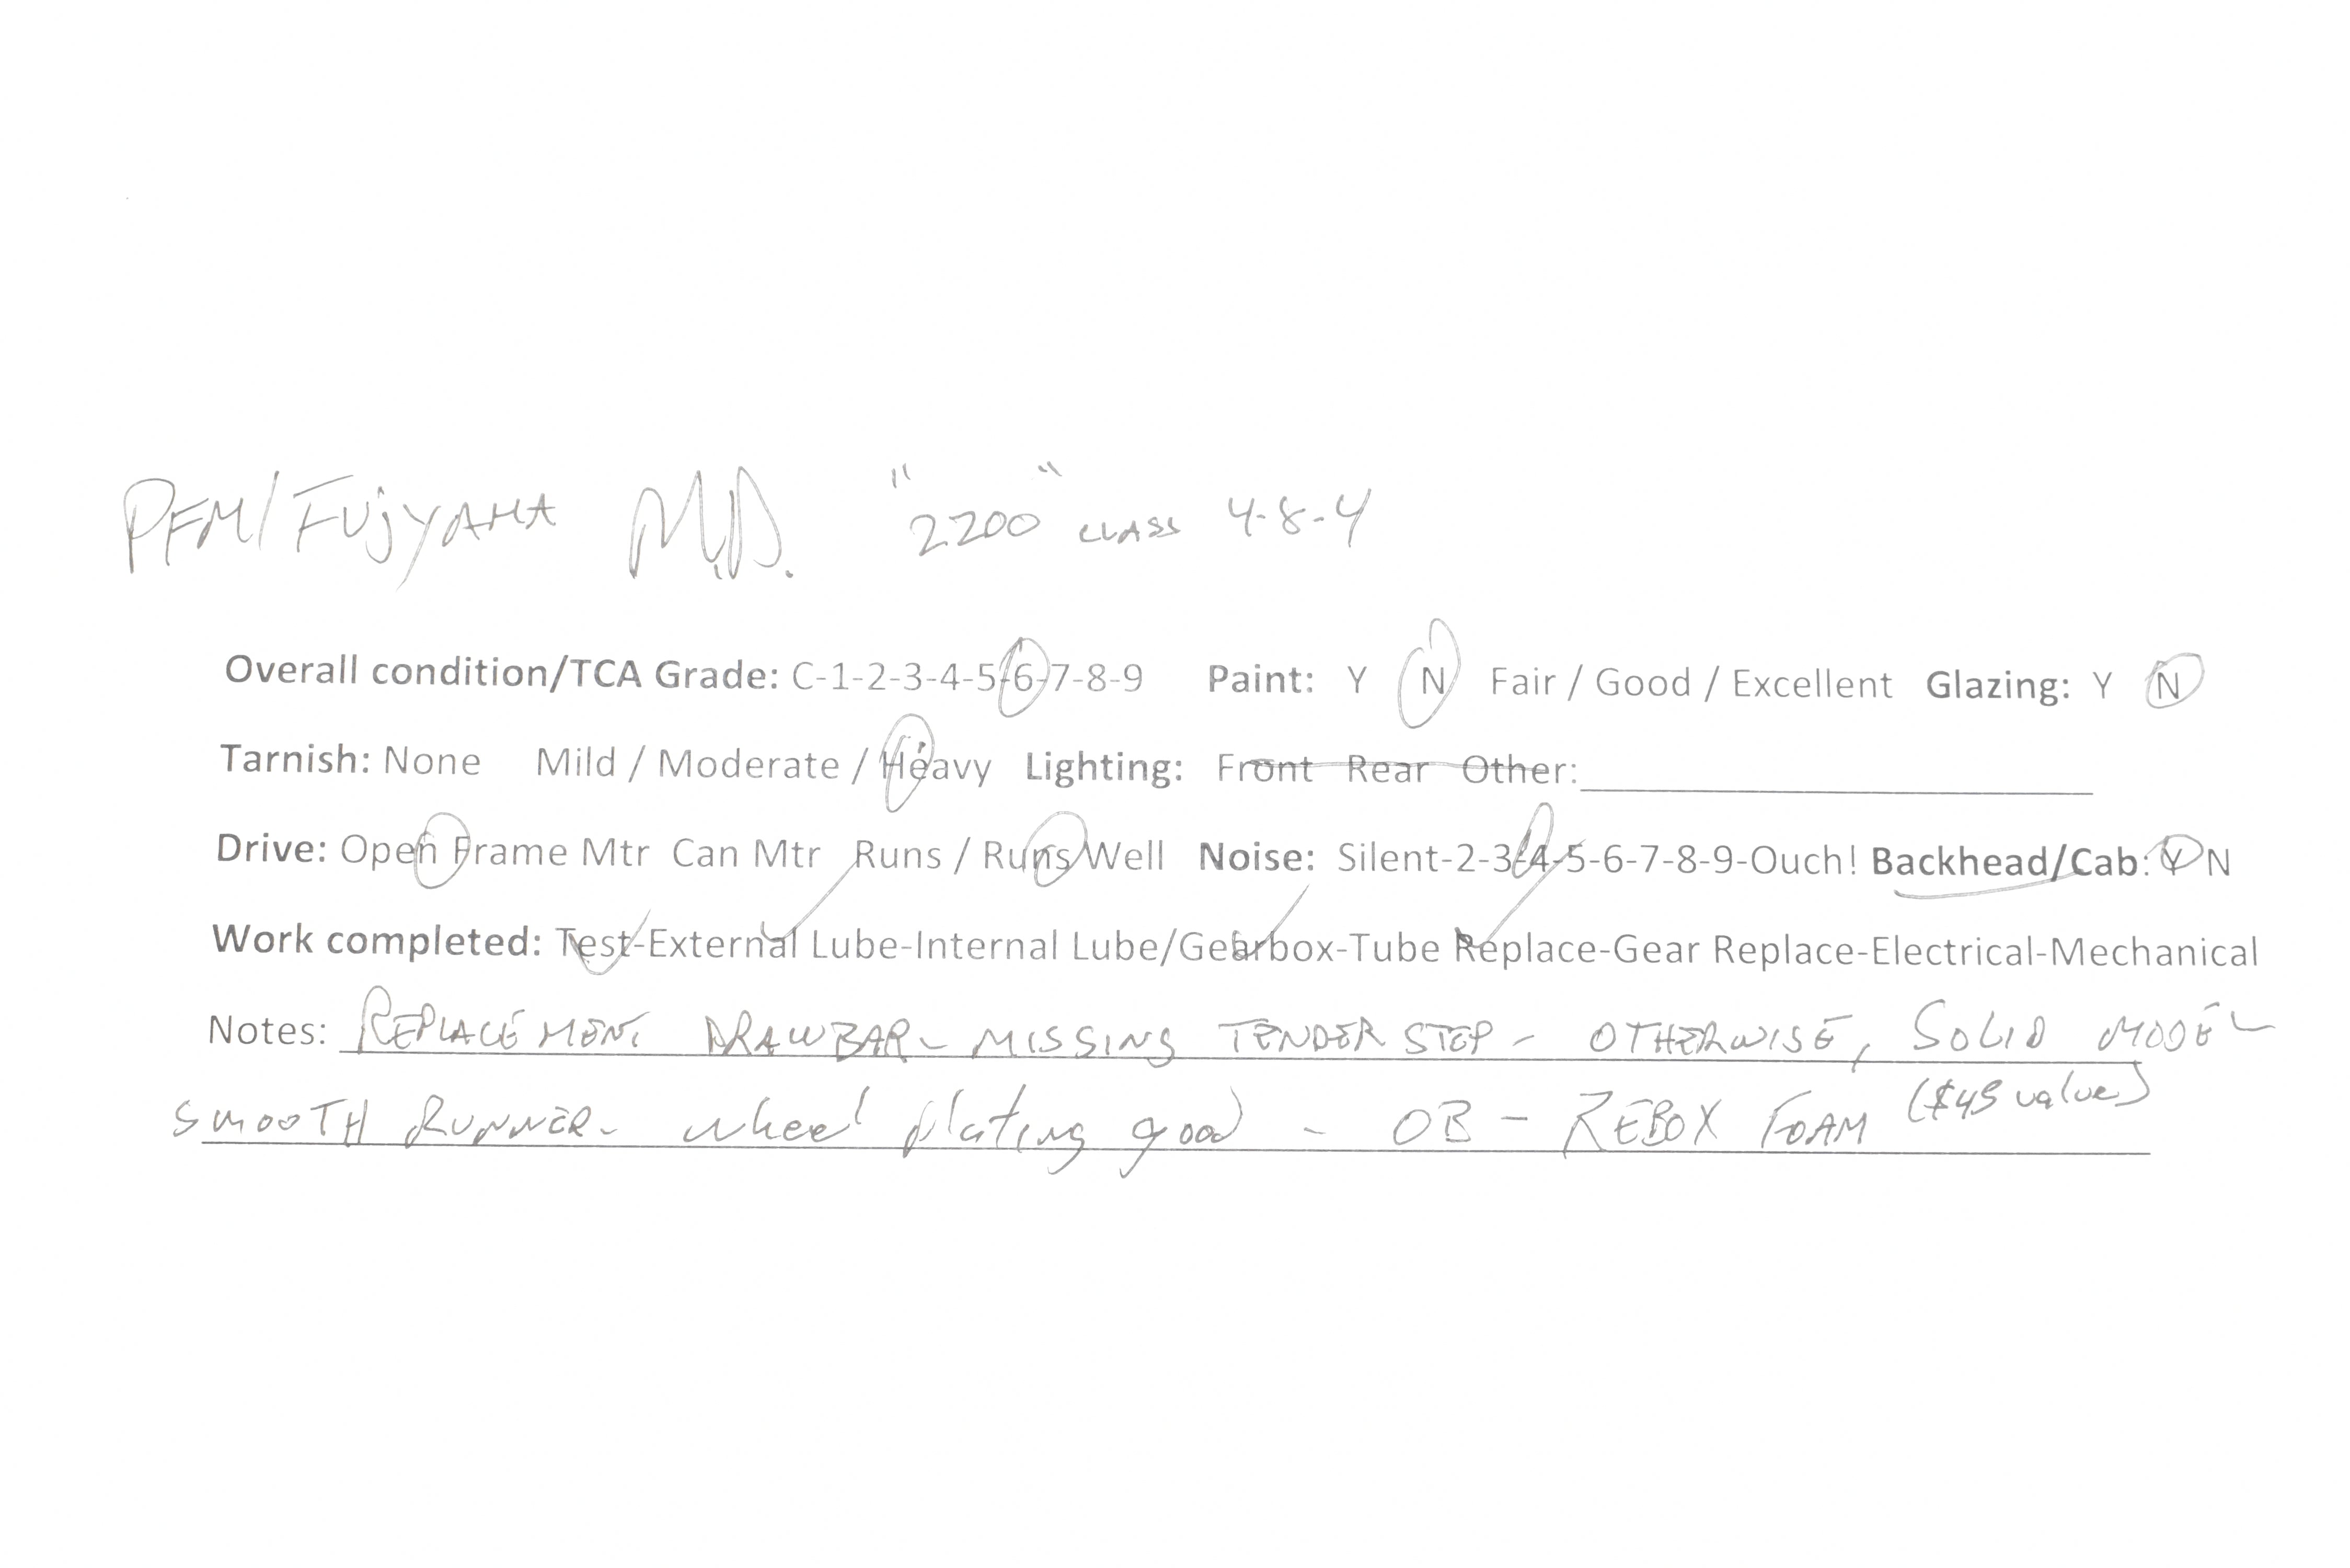 PFM/FUJYAMA M.P. "2200" CLASS 4-8-4
Overall condition/TCA Grade: C-1-2-3-4-5-6-7-8-9 Paint: Y N Fair / Good / Excellent Glazing: Y N
Tarnish: None Mild / Moderate / Heavy Lighting: Front Rear Other:
Drive: Open Frame Mtr Can Mtr Runs / Runs Well Noise: Silent-2-3-4-5-6-7-8-9-Ouch! Backhead/Cab: Y N
Work completed: Test-External Lube-Internal Lube/Gearbox-Tube Replace-Gear Replace-Electrical-Mechanical
Notes: REPLACEMENT DRAWBAR - MISSING TENDER STEP - OTHERWISE, SOLID MODEL
SMOOTH RUNNER - wheel plating good - OB - REBOX FOAM ($45 value)